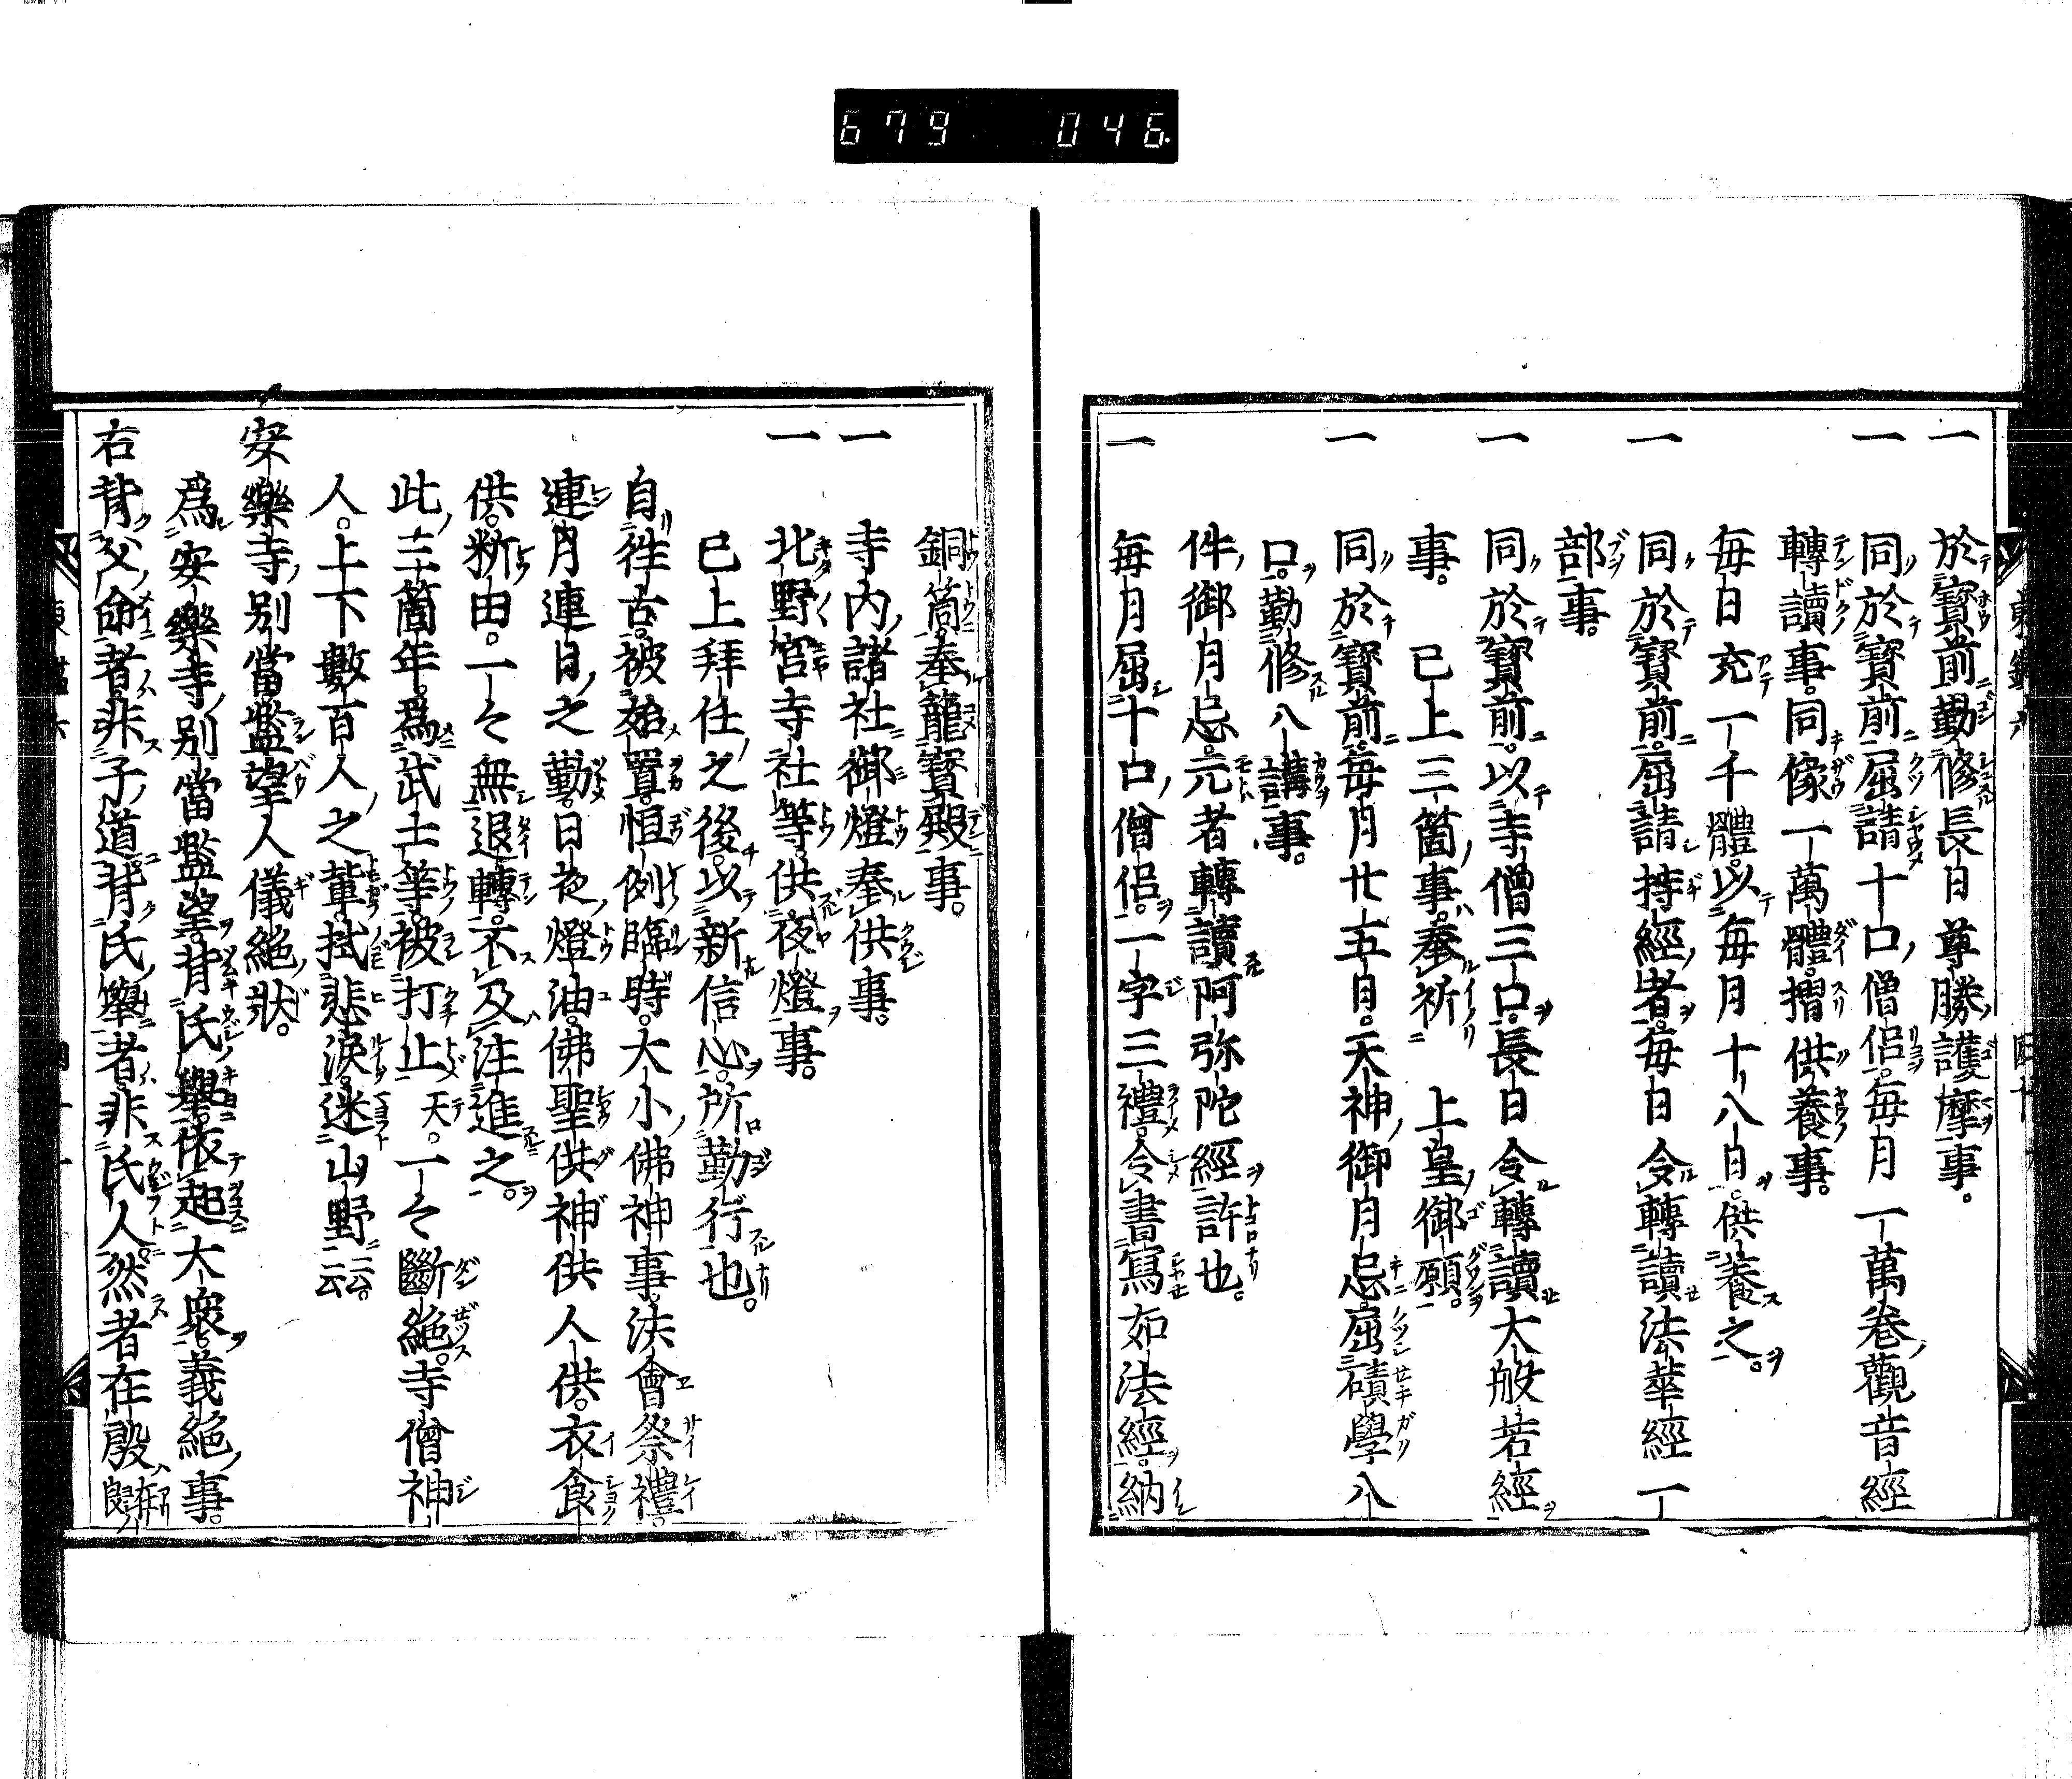 679 046
一於寶前勤修長日尊勝護摩事。
一同於寶前屈請十口僧侶。每月一萬卷觀音經
轉讀事。同像一萬體。摺供養事。
每日充一千體。以每月十八日。供養之。
一同於寶前。屈請持經者。每日令轉讀法華經一
部事。
一同於寶前。以寺僧三口。長日令轉讀大般若經
事。 已上三箇事。奉祈 上皇御願。
一同於寶前。每月廿五日。天神御月忌屈磧學八
口。勤修八講事。
件御月忌。元者轉讀阿弥陀經許也。
一每月屈十口僧侶。一字三禮。令書寫如法經。納
銅筒。奉籠寶殿事。
一寺內諸社御燈奉供事。
一北野宮寺社等。供夜燈事。
已上拜任之後。以新信心。所勤行也。
自往古。被始置。恒例臨時。大小佛神事。法會祭禮。
連月連日之勤。日夜燈油。佛聖供神供人供。衣食
供。𫞂由。一々無退轉。不及注進之。
此三箇年。爲武士等。被打止天。一々斷絕。寺僧神
人。上下數百人之輩。拭悲淚。迷山野云云。
安樂寺別當濫望人儀絕狀。
爲安樂寺別當濫望。背氏擧。依起大衆。義絕事。
右背父命者。非子道。背氏擧者。非氏人。然者在殷